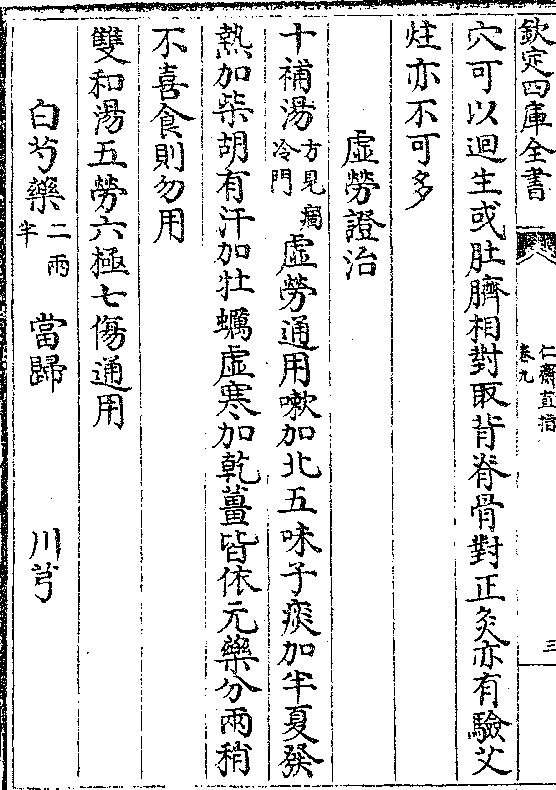 欽定四庫全書
仁齋直指
卷九
三
穴可以迴生或肚臍相對取背脊骨對正灸亦有驗艾
炷亦不可多
虛勞證治
十補湯方見痼冷門虛勞通用嗽加北五味子痰加半夏發
熱加柴胡有汗加牡蠣虛寒加乾薑皆依元藥分兩稍
不喜食則勿用
雙和湯五勞六極七傷通用
白芍藥二兩半 當歸 川芎